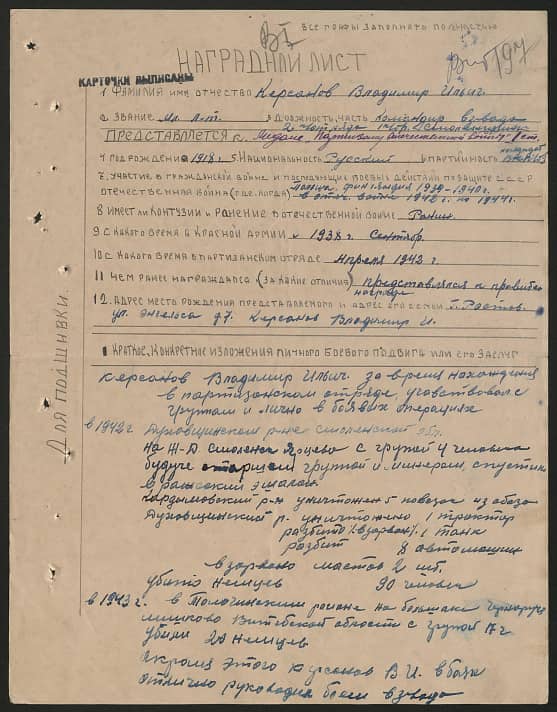 Все графы заполнять полностью
НАГРАДНОЙ ЛИСТ
КАРТОЧКИ ВЫПИСАНЫ
1 Фамилия имя, отчество Керсанов Владимир Ильич.
2 Звание мл. л-т. 3 Должность, часть командир взвода
2
Представляется к. Медаль "Партизану отечественной войны" I ст.
4 Год рождения 1918 г. 5. Национальность Русский 6 партийность кандидат ВКП(б)
7. Участие в гражданской войне и последующие боевых действий по защите СССР
отечественная война (где, когда) финляндия 1939-1940 г.
в отч. война 1942 г. по 1944 г.
8 Имеет ли контузии и ранение в отечественной войне Ранен.
9 С какого время в Красной Армии с 1938 г. Сентябр.
10 с какого время в партизанском отряде апреля 1942 г.
11 Чем ранее награждался (за какие отличия) представлялся к правител.
награде
12. Адрес место рождения представляемого и адрес его семьи г. Ростов.
ул. Энгельса д 7. Керсанов Владимир И.
Краткое, конкретное изложения личного боевого подвига или его заслуг
Для подшивки.
Керсанов Владимир Ильич за время нахождения
в партизанском отряде, участвовал с
групам и лично в боявых операциях
в 1942 г. Духовщинском р-не Смоленской обл.
на Ж-Д Смоленск Ярцево с групой 4 человека
будуче старшем групой и минером, спустил
вражеский эшалон
Кардымовский р-н уничтожен 5 повозок из обоза
Духовщинский р. уничтожено 1 трактор
разбито (взорван). 1 танк
разбит 8 автомашин
взорвано мастов 2 шт.
убито немцев 30 человек
в 1943 г. в Толочинским районе на большаке
Витебской области с групой 17 г.
убили 20 немцев
акромя этого Керсанов В И. в боях
отлично руководил боем взвода